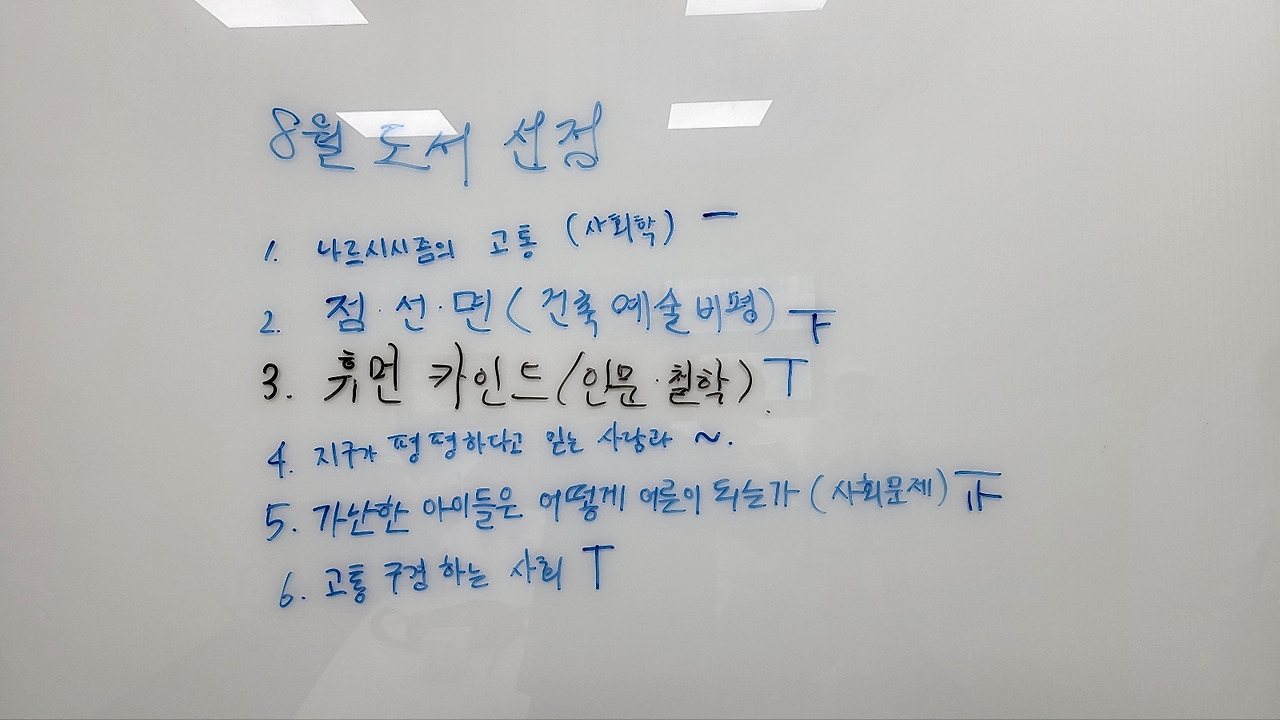 8월 도서 선정
1. 나르시시즘의 고통 (사회학) 一
2. 점·선·면 (건축 예술비평) 下
3. 휴먼 카인드 (인문·철학) T
4. 지구가 평평하다고 믿는 사람과 ~.
5. 가난한 아이들은 어떻게 어른이 되는가 (사회문제) 正
6. 고통 구경하는 사회 T